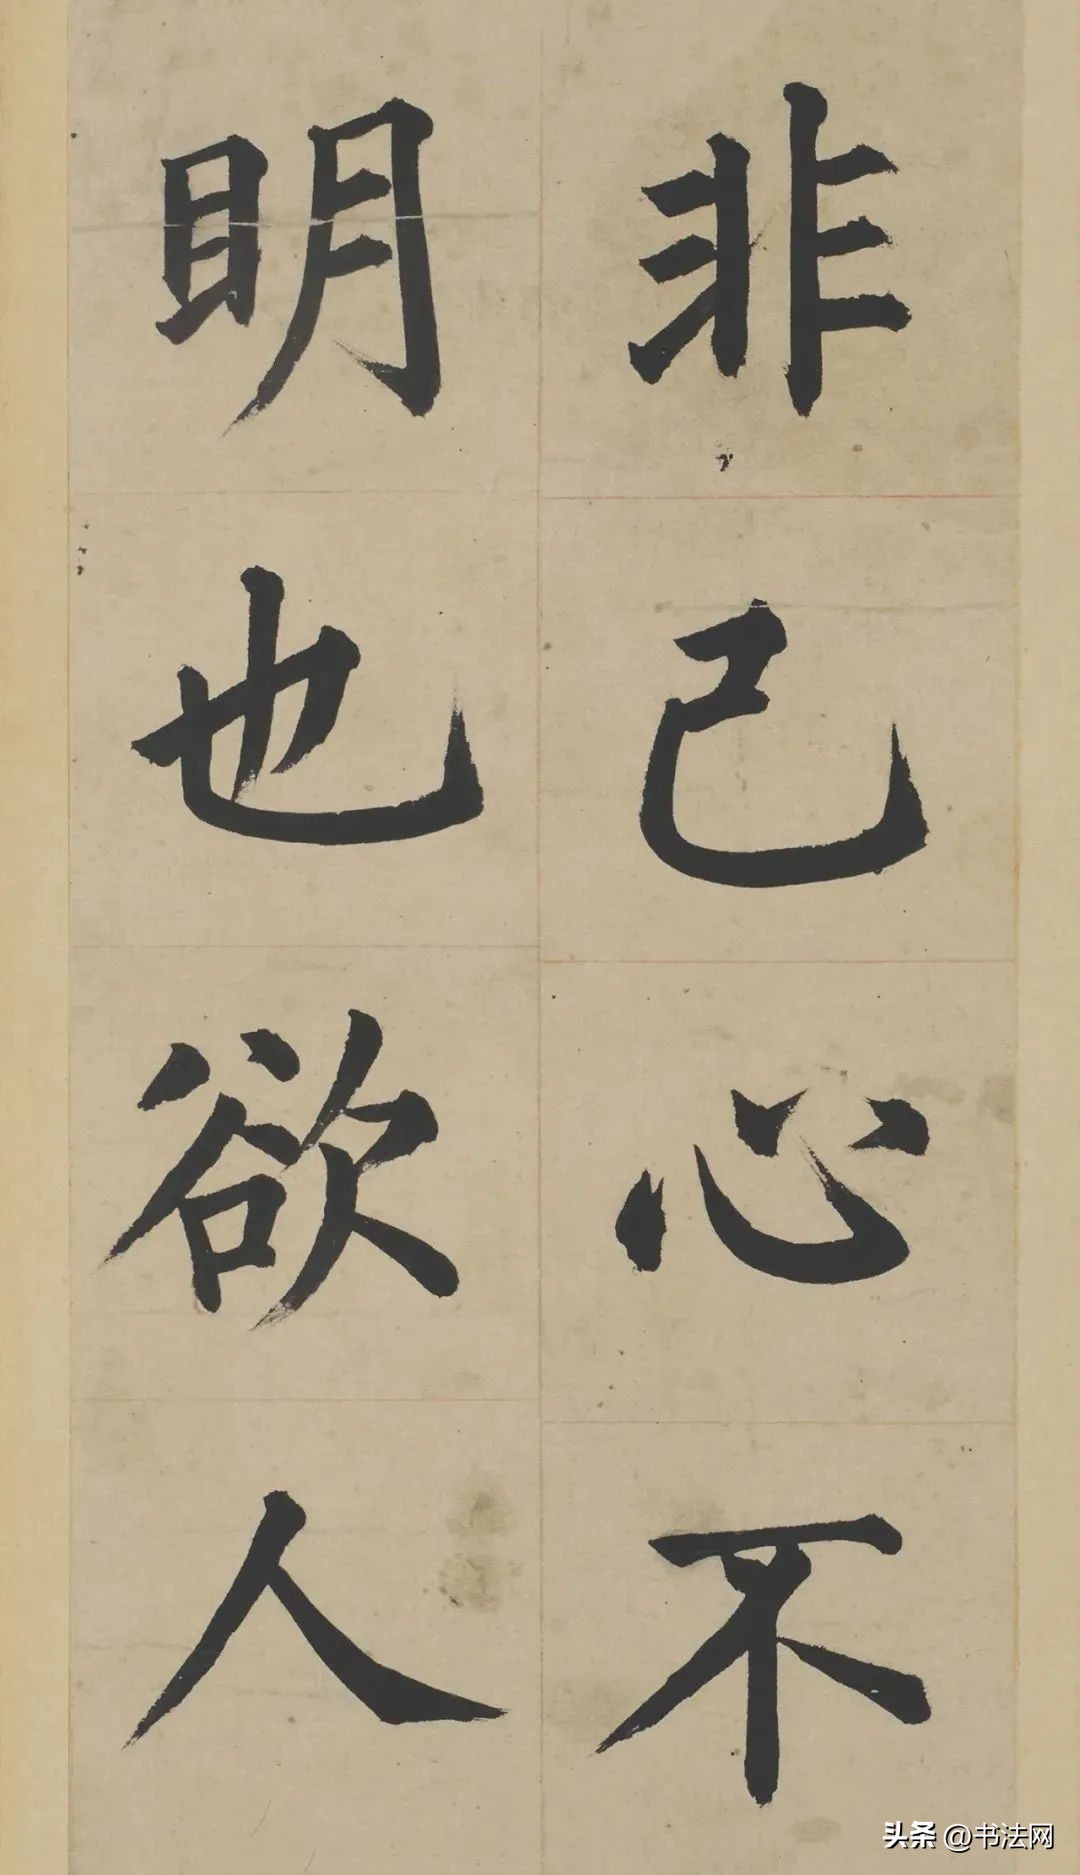 非己心不
明也欲人
头条 @书法网